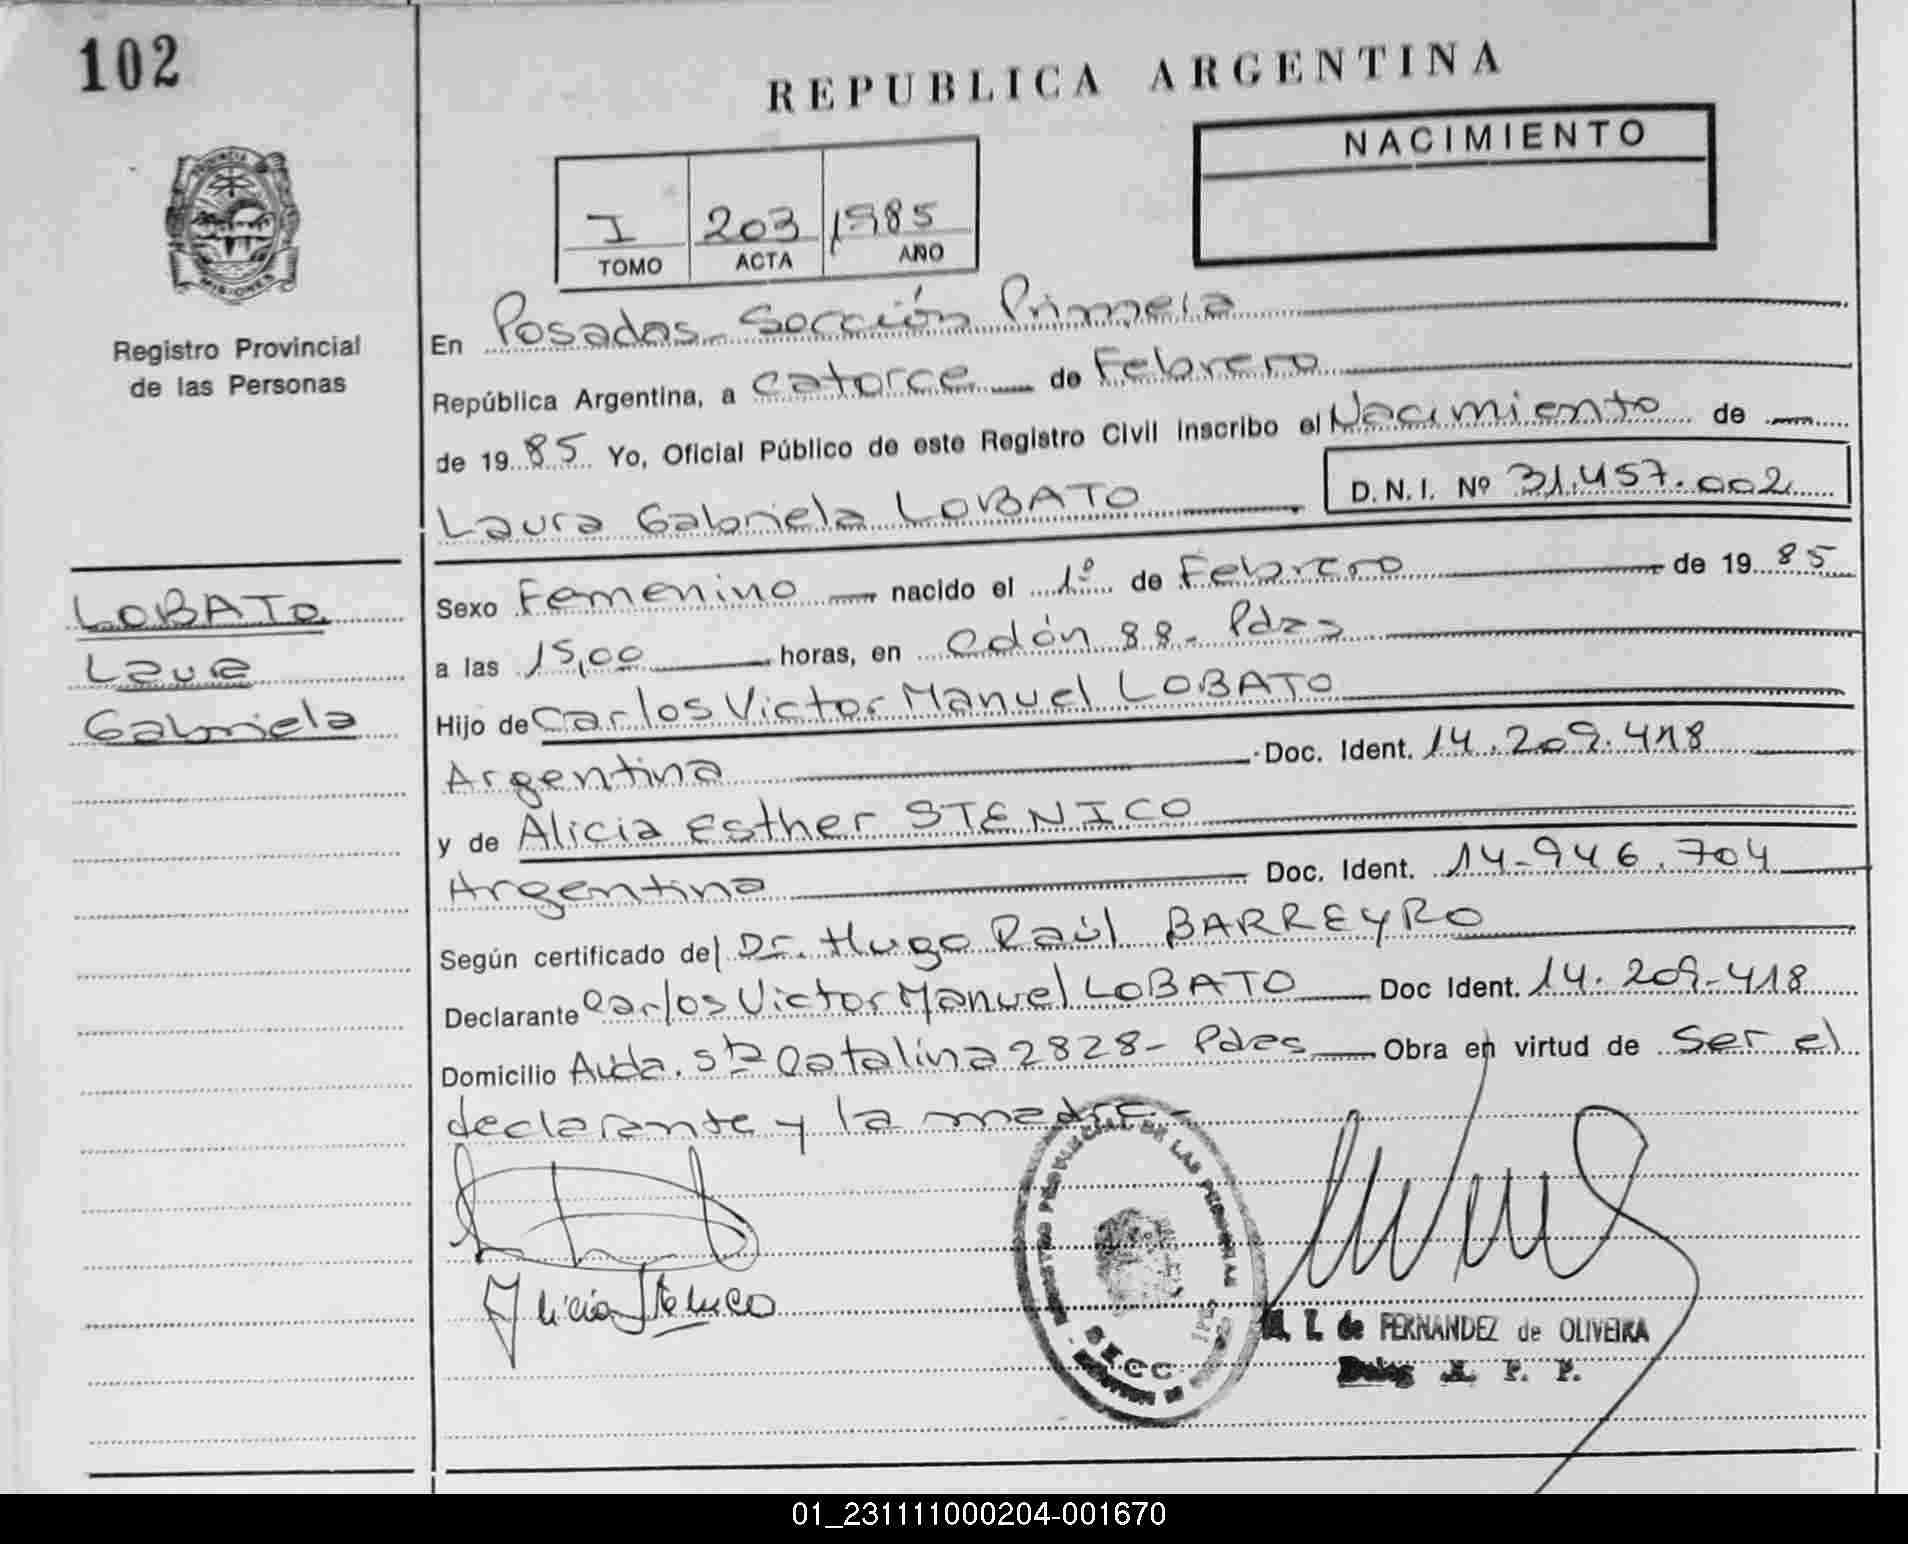 102
REPUBLICA ARGENTINA
NACIMIENTO
I 203 1985
TOMO ACTA AÑO
PROVINCIA
MISIONES
Registro Provincial
de las Personas
En Posadas - Sección Primera
República Argentina, a catorce de Febrero
de 1985 Yo, Oficial Público de este Registro Civil Inscribo el Nacimiento de
Laura Gabriela LOBATO D.N.I. Nº 31.457.002
LOBATO
Laura
Gabriela
Sexo Femenino nacido el 1º de Febrero de 1985
a las 15,00 horas, en Colón 88 - Pdas
Hijo de Carlos Victor Manuel LOBATO
Argentina Doc. Ident. 14.209.418
y de Alicia Esther STENICO
Argentina Doc. Ident. 14-946.704
Según certificado del Dr. Hugo Raúl BARREYRO
Declarante Carlos Victor Manuel LOBATO Doc Ident. 14.209-418
Domicilio Avda. Sta Catalina 2828 - Pdas Obra en virtud de ser el
declarante y la madre -
Alicia Stenico
REGISTRO PROVINCIAL DE LAS PERSONAS
SECC.
M. I. de FERNANDEZ de OLIVEIRA
R. P. P.
01_231111000204-001670